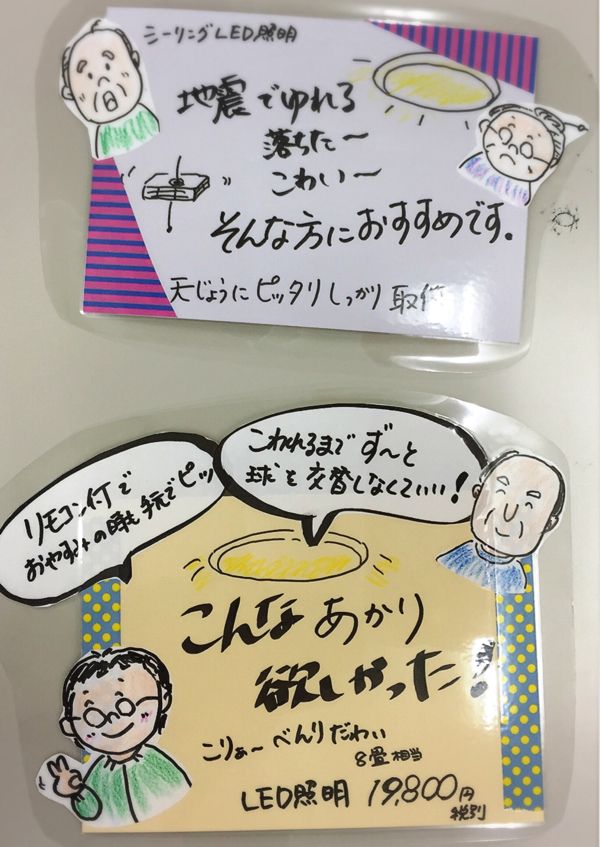 シーリングLED照明
地震でゆれる
落ちた～
こわい～
そんな方におすすめです。
天じょうにピッタリしっかり取付
リモコン付で
おやすみの時も手元でピッ
こわれるまでず～と
球を交替しなくていい!
こんなあかり
欲しかった!
こりぁ～べんりだわい
8畳相当
LED照明 19,800円
税別